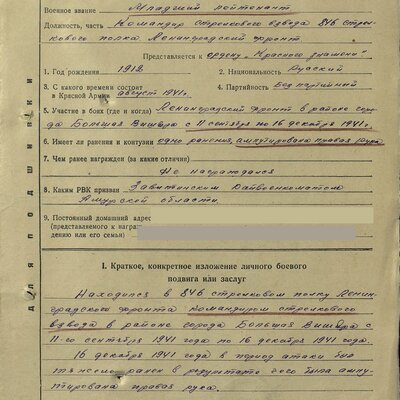 Военное звание Младший лейтенант
Должность, часть Командир стрелкового взвода 846 стрел-
кового полка Ленинградский фронт
Представляется к ордену „Красного знамени"
1. Год рождения 1912 2. Национальность Русский
3. С какого времени состоит
в Красной Армии август 1941 г. 4. Партийность Безпартийный
5. Участие в боях (где и когда) Ленинградский фронт в районе горо-
да Большая Вишера с 11 сентября по 16 декабря 1941 г.
6. Имеет ли ранения и контузии одно ранение, ампутирована правая рука
7. Чем ранее награжден (за какие отличия)
Не награждался
8. Каким РВК призван Завитинским Райвоенкоматом
Амурской области.
9. Постоянный домашний адрес
(представляемого к награж
дению или его семьи)
для подшивки
I. Краткое, конкретное изложение личного боевого
подвига или заслуг
Находился в 846 стрелковом полку Ленин-
градского фронта командиром стрелкового
взвода в районе города Большая Вишера с
11-го сентября 1941 года по 16 декабря 1941 года.
16 декабря 1941 года в период атаки был
тяжело ранен в результате чего была ампу-
тирована правая рука.